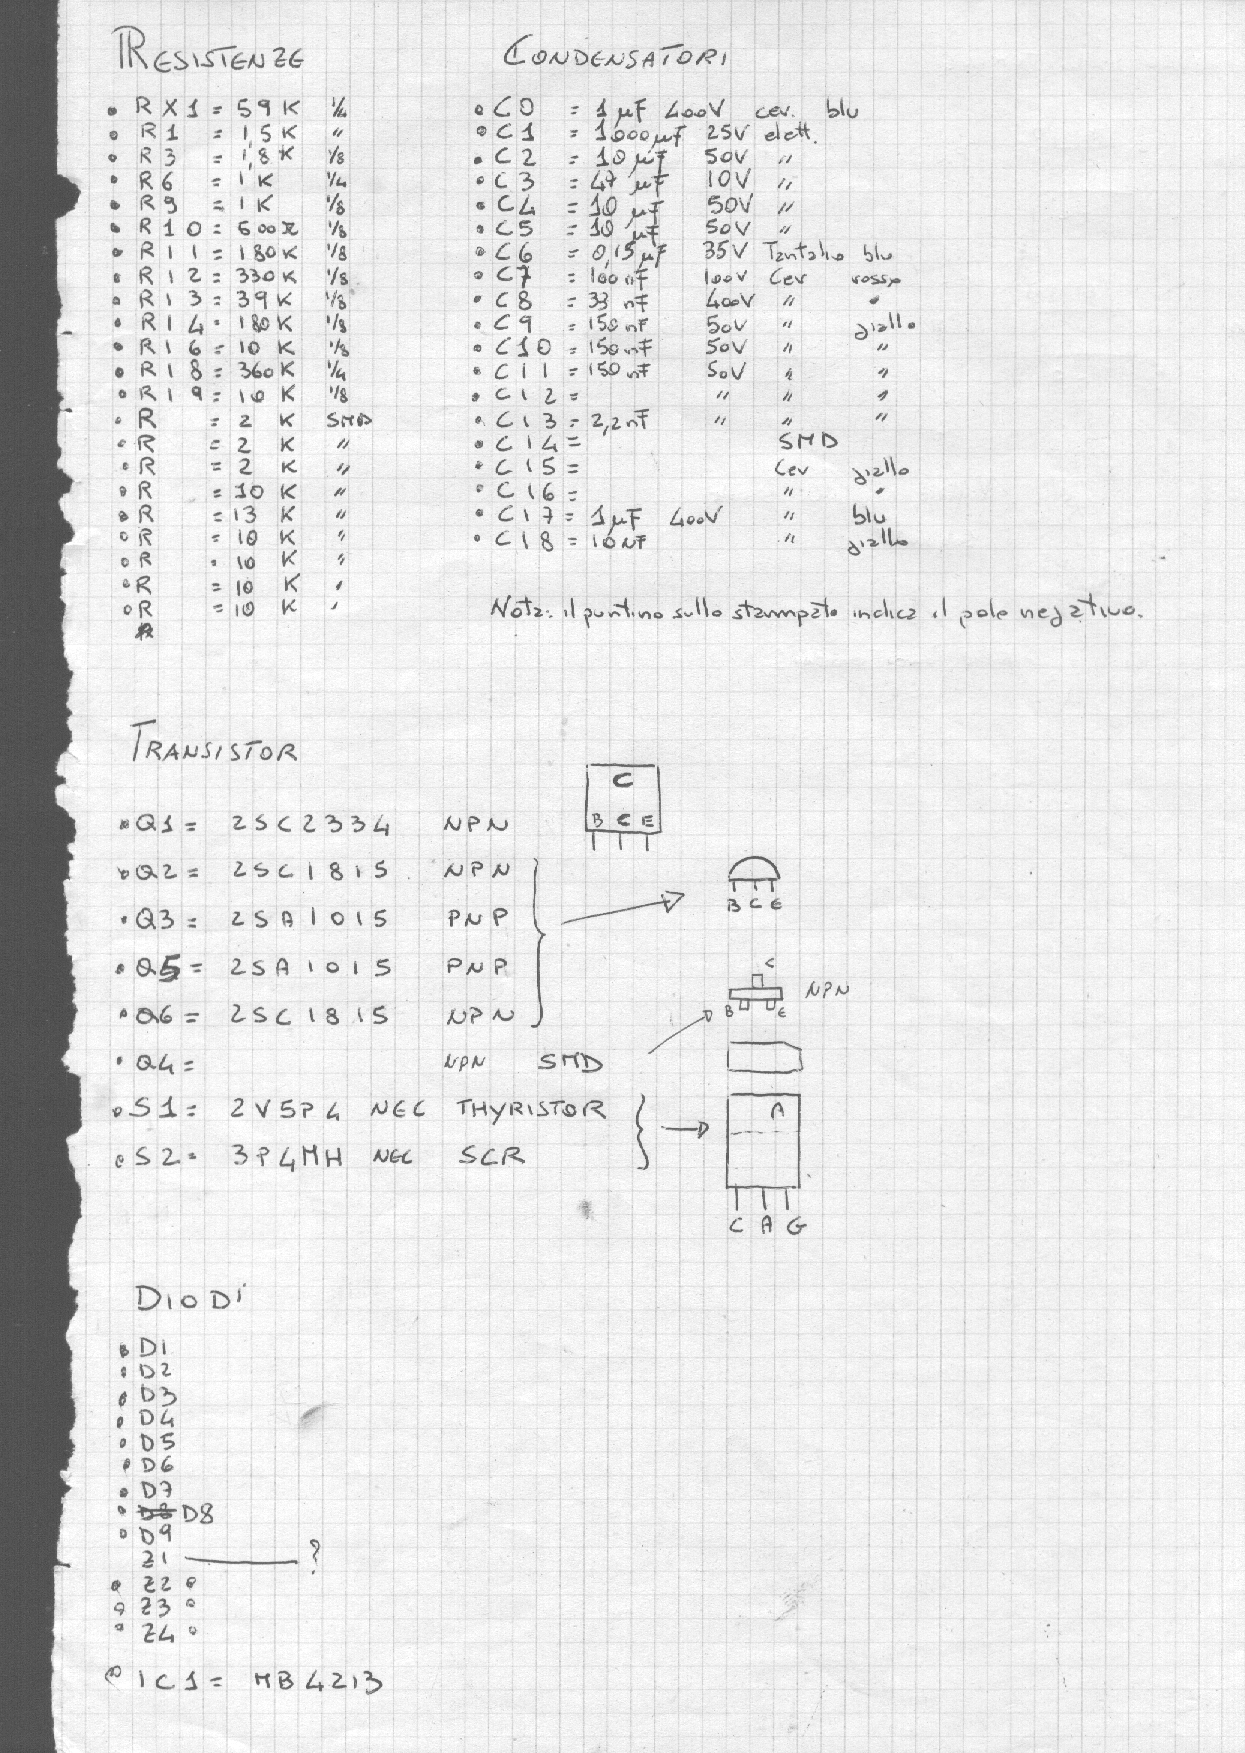 RESISTENZE
• RX1 = 59K 1/4
• R1 = 1,5K "
• R3 = 1,8K 1/8
• R6 = 1K 1/4
• R9 = 1K 1/8
• R10 = 600Ω 1/8
• R11 = 180K 1/8
• R12 = 330K 1/8
• R13 = 39K 1/8
• R14 = 180K 1/8
• R16 = 10K 1/8
• R18 = 360K 1/4
• R19 = 10K 1/8
• R = 2K SMD
• R = 2K "
• R = 2K "
• R = 10K "
• R = 13K "
• R = 10K "
• R = 10K "
• R = 10K "
• R = 10K "
CONDENSATORI
• C0 = 1µF 400V cer. blu
• C1 = 1000µF 25V elett.
• C2 = 10µF 50V "
• C3 = 47µF 10V "
• C4 = 10µF 50V "
• C5 = 10µF 50V "
• C6 = 0,15µF 35V Tantalio blu
• C7 = 100nF 100V Cer rosso
• C8 = 33nF 400V " "
• C9 = 150nF 50V " giallo
• C10 = 150nF 50V " "
• C11 = 150nF 50V " "
• C12 = " " "
• C13 = 2,2nF " " "
• C14 = SMD
• C15 = Cer giallo
• C16 = " "
• C17 = 1µF 400V " blu
• C18 = 10NF " giallo
Nota: il puntino sullo stampato indica il polo negativo.
TRANSISTOR
C
B C E
• Q1 = 2SC2334 NPN
• Q2 = 2SC1815 NPN
• Q3 = 2SA1015 PNP
B C E
• Q5 = 2SA1015 PNP
• Q6 = 2SC1815 NPN
C
NPN
B E
• Q4 = NPN SMD
• S1 = 2V5P4 NEC THYRISTOR
• S2 = 3P4MH NEC SCR
A
C A G
DIODI
• D1
• D2
• D3
• D4
• D5
• D6
• D7
• D8 D8
• D9
Z1 ——— ?
• Z2 •
• Z3 •
• Z4 •
• IC1 = MB4213